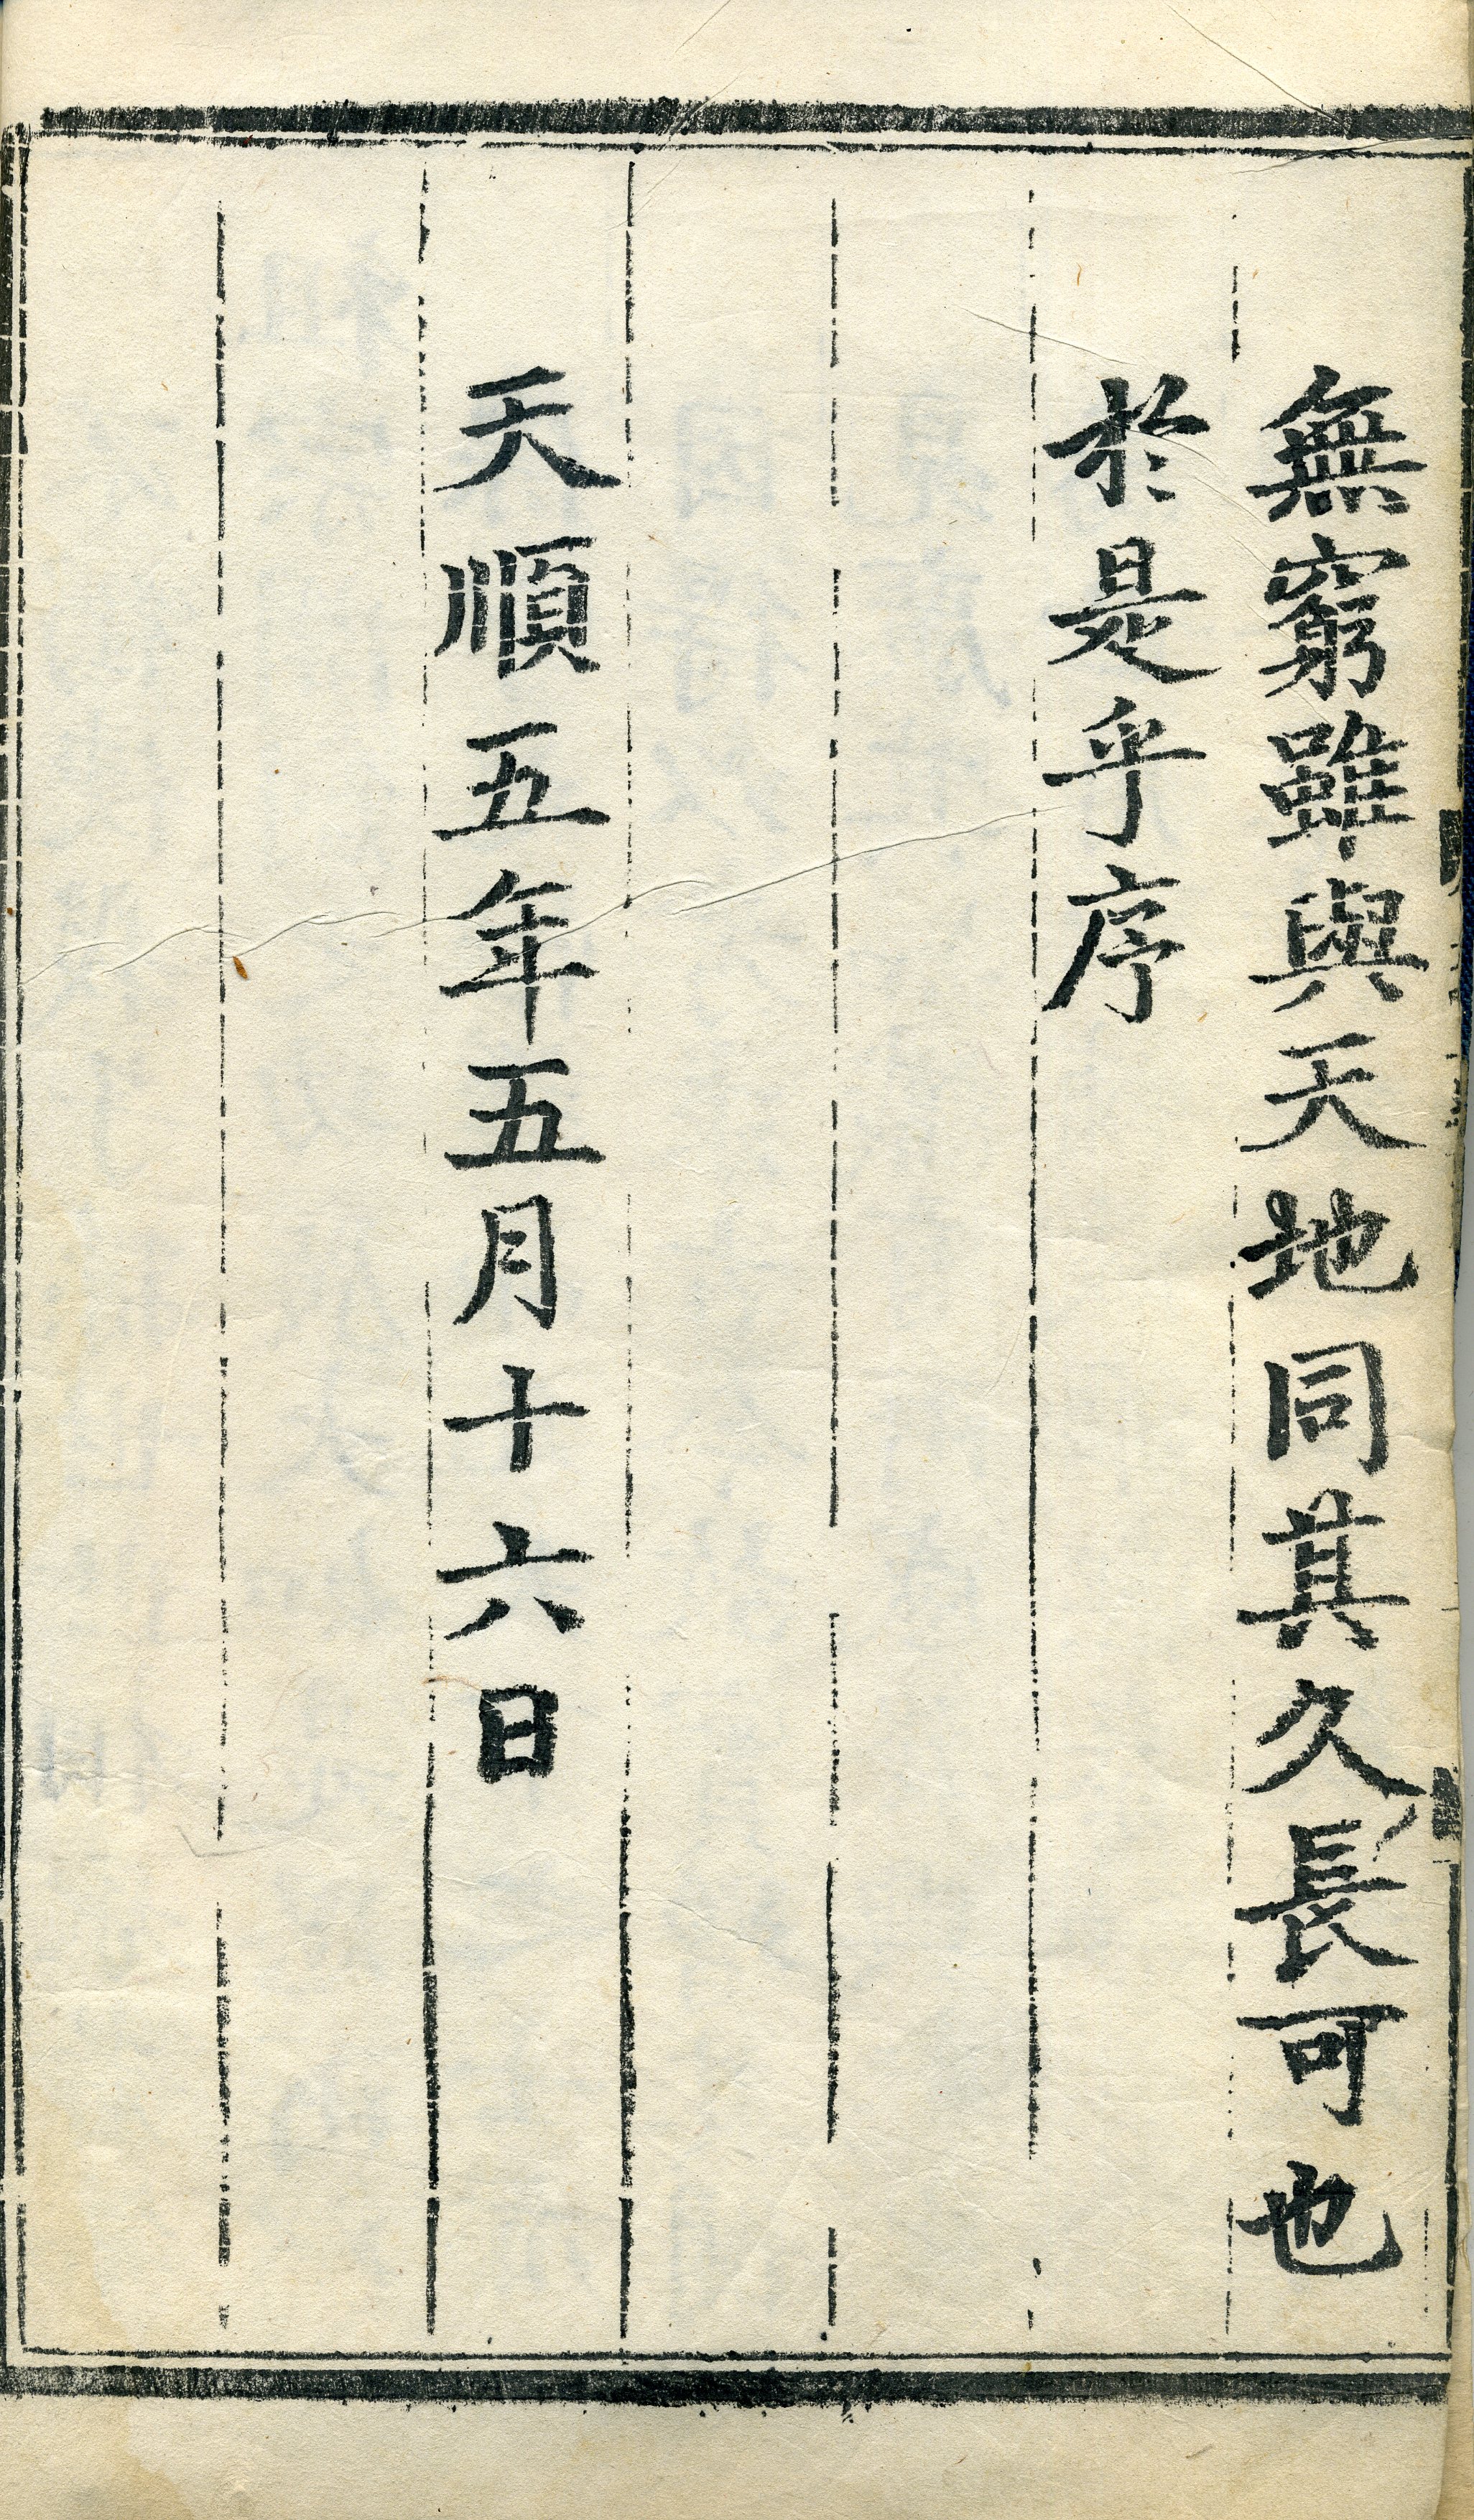 無窮雖與天地同其久長可也
於是乎序
天順五年五月十六日